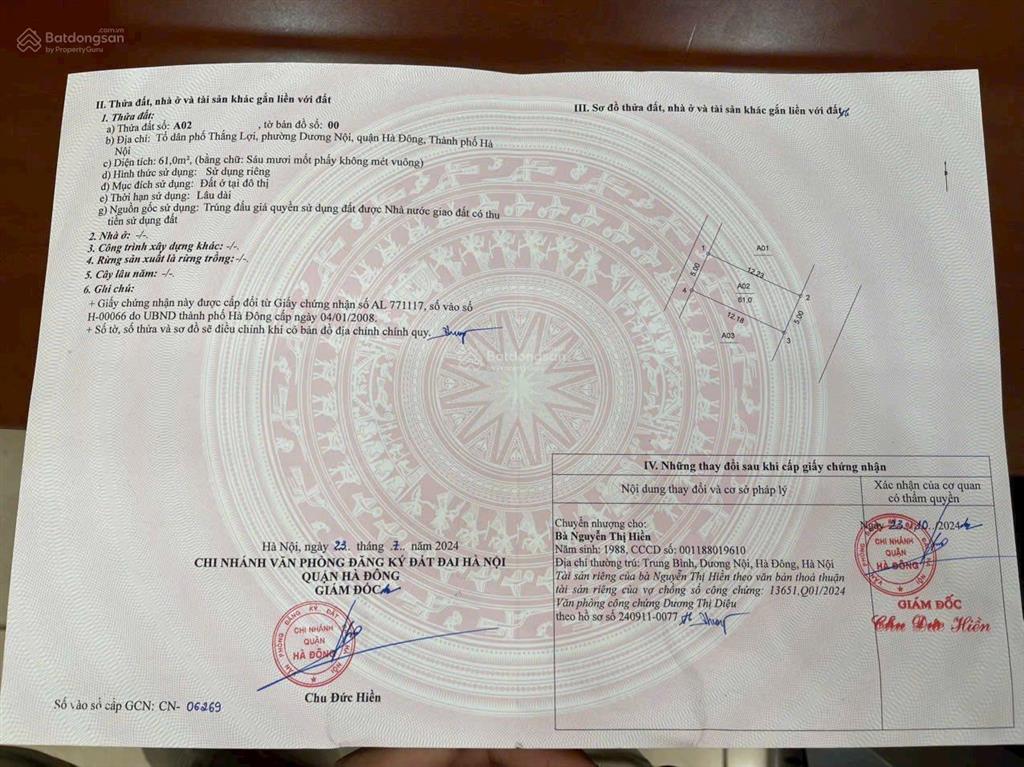 Batdongsan.com.vn
by PropertyGuru
II. Thửa đất, nhà ở và tài sản khác gắn liền với đất
1. Thửa đất:
a) Thửa đất số: A02 , tờ bản đồ số: 00
b) Địa chỉ: Tổ dân phố Thắng Lợi, phường Dương Nội, quận Hà Đông, Thành phố Hà
Nội
c) Diện tích: 61,0m², (bằng chữ: Sáu mươi mốt phẩy không mét vuông)
d) Hình thức sử dụng: Sử dụng riêng
đ) Mục đích sử dụng: Đất ở tại đô thị
e) Thời hạn sử dụng: Lâu dài
g) Nguồn gốc sử dụng: Trúng đấu giá quyền sử dụng đất được Nhà nước giao đất có thu
tiền sử dụng đất
2. Nhà ở: -/-.
3. Công trình xây dựng khác: -/-.
4. Rừng sản xuất là rừng trồng:-/-.
5. Cây lâu năm: -/-.
6. Ghi chú:
+ Giấy chứng nhận này được cấp đổi từ Giấy chứng nhận số AL 771117, số vào sổ
H-00066 do UBND thành phố Hà Đông cấp ngày 04/01/2008.
+ Số tờ, số thửa và sơ đồ sẽ điều chỉnh khi có bản đồ địa chính chính quy.
Hà Nội, ngày 23. tháng .7. năm 2024
CHI NHÁNH VĂN PHÒNG ĐĂNG KÝ ĐẤT ĐAI HÀ NỘI
QUẬN HÀ ĐÔNG
GIÁM ĐỐC
CHI NHÁNH
QUẬN
HÀ ĐÔNG
Chu Đức Hiền
Số vào sổ cấp GCN: CN- 06269
III. Sơ đồ thửa đất, nhà ở và tài sản khác gắn liền với đất
1
A01
5.00
12.23
4
A02
61.0
2
12.18
5.00
A03
3
Batdongsan
IV. Những thay đổi sau khi cấp giấy chứng nhận
Nội dung thay đổi và cơ sở pháp lý
Xác nhận của cơ quan
có thẩm quyền
Chuyển nhượng cho:
Bà Nguyễn Thị Hiền
Năm sinh: 1988, CCCD số: 001188019610
Địa chỉ thường trú: Trung Bình, Dương Nội, Hà Đông, Hà Nội
Tài sản riêng của bà Nguyễn Thị Hiền theo văn bản thoả thuận
tài sản riêng của vợ chồng số công chứng: 13651.Q01/2024
Văn phòng công chứng Dương Thị Diệu
theo hồ sơ số 240911-0077
Ngày 23.10../2024
CHI NHÁNH
QUẬN
HÀ ĐÔNG
GIÁM ĐỐC
Chu Đức Hiền